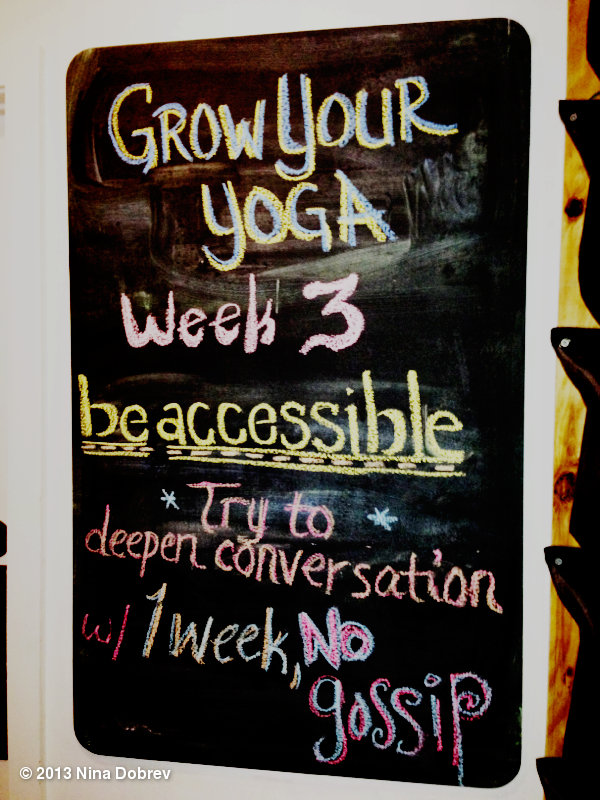 GROW YOUR
YOGA
Week 3
be accessible
* Try to *
deepen conversation
w/ 1 week, No
gossip
© 2013 Nina Dobrev